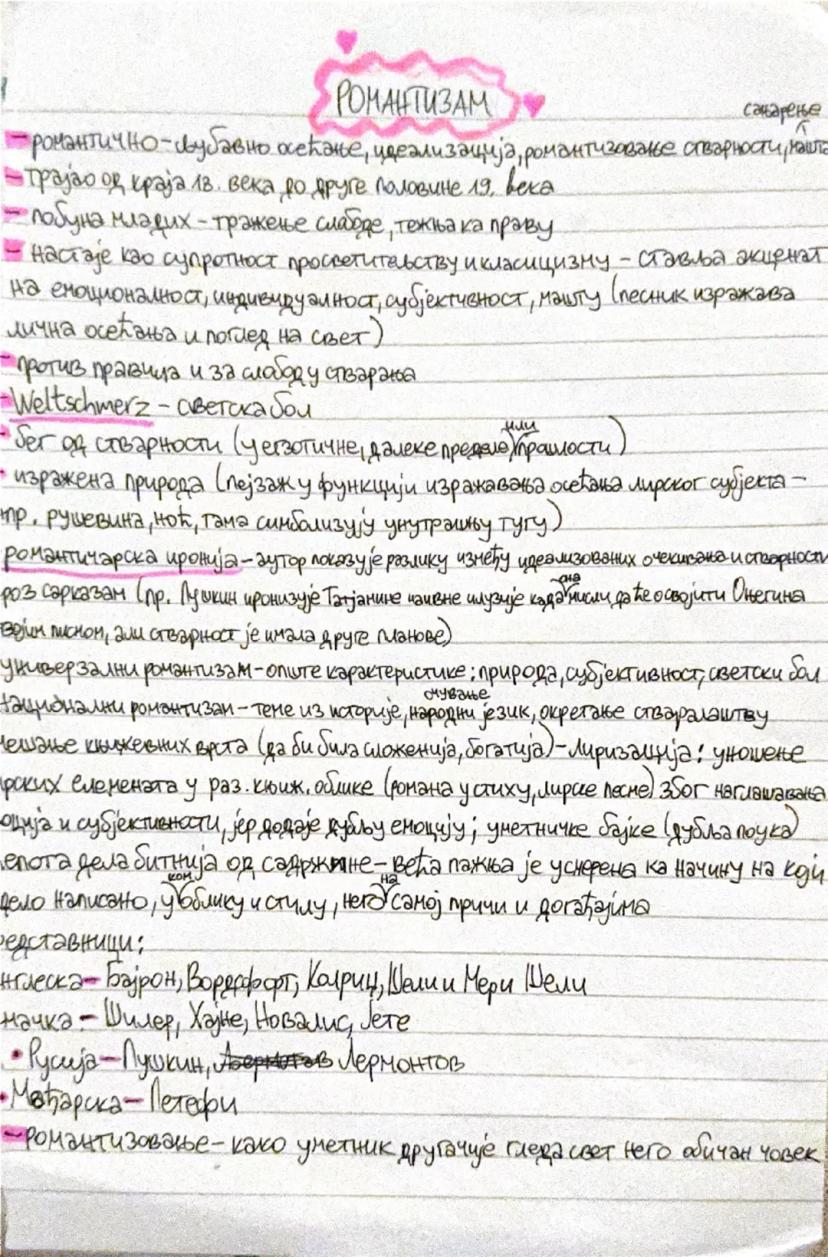 РОМАНТИЗАМ
сањарење
-романтично-љубавно осећање, идеализација, романтизовање стварности, машта
-трајао од краја 18. века до друге половине 19. века
-побуна младих - тражење слободе, тежња ка праву
-настаје као супротност просветитељству и класицизму - ставља акценат
на емоционалност, индивидуалност, субјективност, машту (песник изражава
лична осећања и поглед на свет)
-против правила и за слободу стварања
-Weltschmerz - светска бол
бег од стварности (у егзотичне, далеке пределе) или прошлости)
изражена природа (пејзаж у функцији изражавања осећања лирског субјекта -
нпр. рушевина, ноћ, тама симболизују унутрашњу тугу)
романтичарска иронија-аутор показује разлику између идеализованих очекивања и стварности
роз сарказам (пр. Пушкин иронизује Татјанине наивне илузије када она мисли да ће освојити Оњегина
војим писмом, али стварност је имала друге планове)
универзални романтизам-опште карактеристике: природа, субјективност, светски бол
национални романтизам-теме из историје, очување народни језик, окретање стваралаштву
ешање књижевних врста (да би била сложенија, богатија)-лиризација: уношење
рских елемената у раз. књиж. облике (романа у стиху, лирске песме) због наглашавања
оција и субјективности, јер додаје дубљу емоцију; уметничке бајке (дубља поука)
епота дела битнија од садржине-већа пажња је усмерена ка начину на који
дело написано, у ком облику и стилу, него на самој причи и догађајима
едставници:
нглеска-Бајрон, Вордсфорт, Колриџ, Шели и Мери Шели
мачка-Шилер, Хајне, Новалис, Гете
•Русија-Пушкин, Лермонтов
•Мађарска-Петефи
-романтизовање-како уметник другачије гледа свет него обичан човек